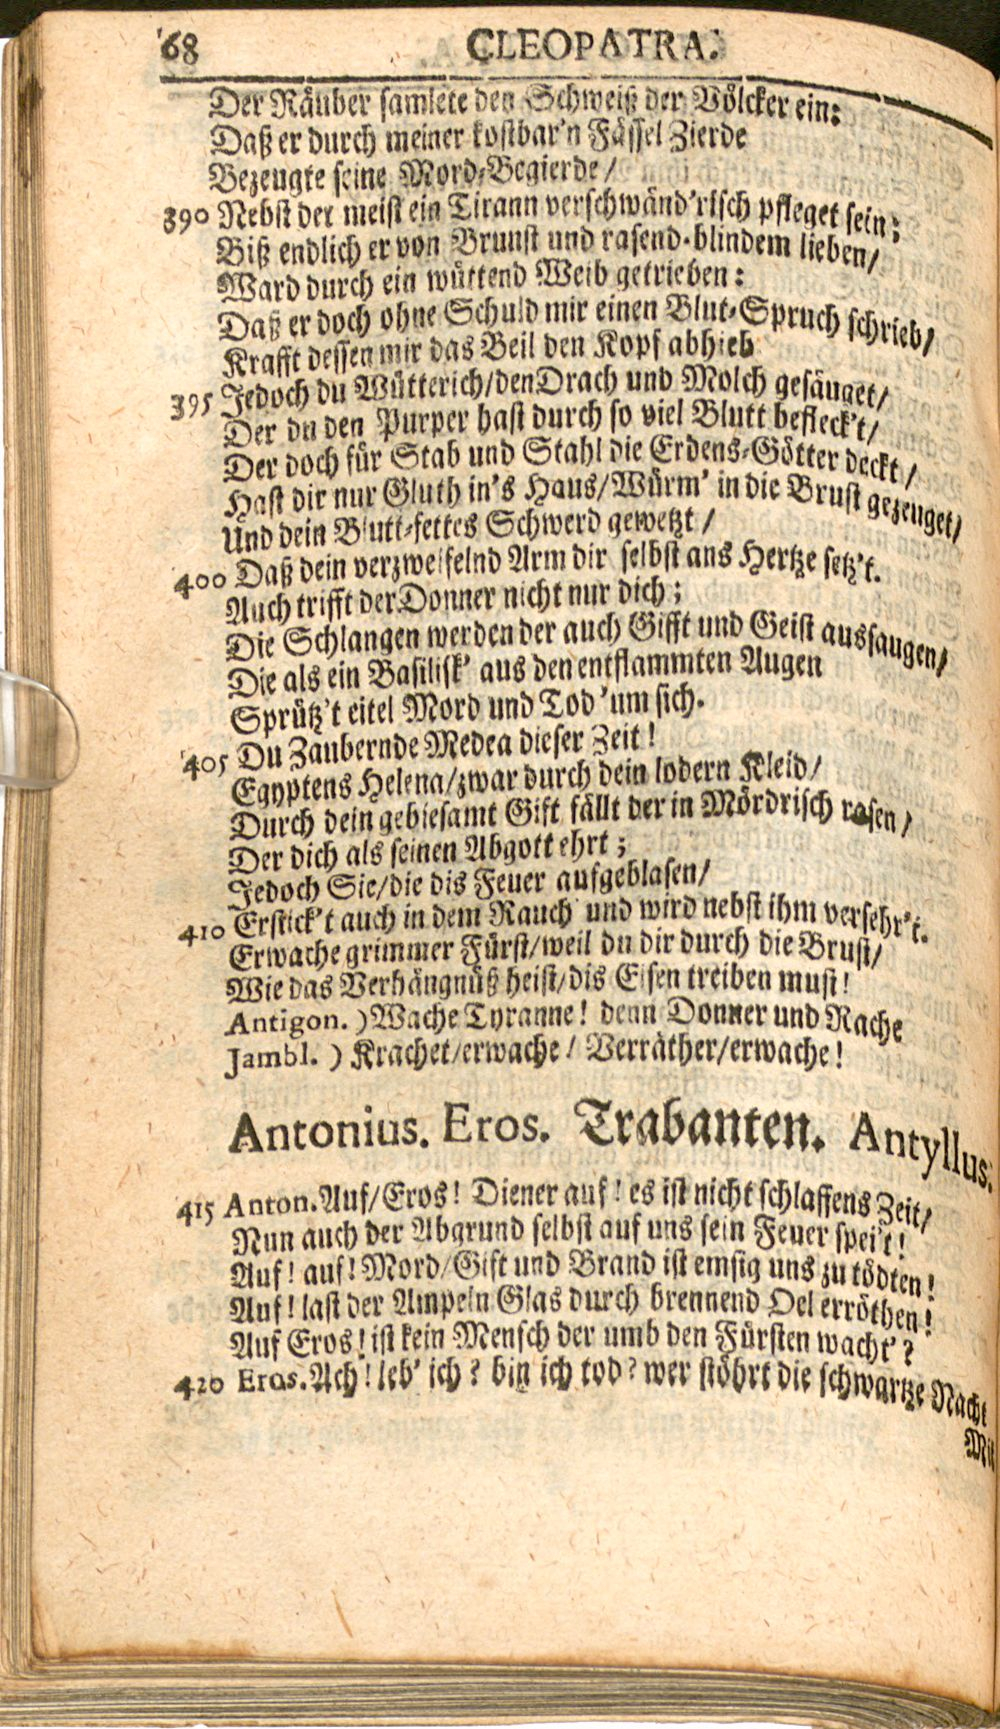 68 CLEOPATRA.
Der Räuber samlete den Schweiß der Völcker ein:
Daß er durch meiner kostbar'n Fässel Zierde
Bezeugte seine Mord-Begierde/
390 Nebst der meist ein Tirann verschwänd'risch pfleget sein;
Biß endlich er von Brunst und rasend-blindem lieben/
Ward durch ein wüttend Weib getrieben:
Daß er doch ohne Schuld mir einen Blut-Spruch schrieb/
Krafft dessen mir das Beil den Kopf abhieb
395 Jedoch du Wütterich/den Drach und Molch gesäuget/
Der du den Purper hast durch so viel Blutt befleck't/
Der doch für Stab und Stahl die Erdens-Götter deckt/
Hast dir nur Gluth in's Haus/Würm' in die Brust gezeuget/
Und dein Blutt-fettes Schwerd gewetzt/
400 Daß dein verzweifelnd Arm dir selbst ans Hertze setz't.
Auch trifft der Donner nicht nur dich;
Die Schlangen werden der auch Gifft und Geist aussaugen/
Die als ein Basilisk' aus den entflammten Augen
Sprütz't eitel Mord und Tod' um sich.
405 Du Zaubernde Medea dieser Zeit!
Egyptens Helena/zwar durch dein lodern Kleid/
Durch dein gebiesamt Gift fällt der in Mördrisch rasen/
Der dich als seinen Abgott ehrt;
Jedoch Sie/die dis Feuer aufgeblasen/
410 Erstick't auch in dem Rauch und wird nebst ihm versehr't.
Erwache grimmer Fürst/weil du dir durch die Brust/
Wie das Verhängnüß heist/dis Eisen treiben must!
Antigon. ) Wache Tyranne! denn Donner und Rache
Jambl. ) Krachet/erwache/ Verräther/erwache!
Antonius. Eros. Trabanten. Antyllus.
415 Anton. Auf/Eros! Diener auf! es ist nicht schlaffens Zeit/
Nun auch der Abgrund selbst auf uns sein Feuer spei't!
Auf! auf! Mord/Gift und Brand ist emsig uns zu tödten!
Auf! last der Ampeln Glas durch brennend Oel erröthen!
Auf Eros! ist kein Mensch der umb den Fürsten wacht'?
420 Eros. Ach! leb' ich? bin ich tod? wer stöhrt die schwartze Nacht
Mit